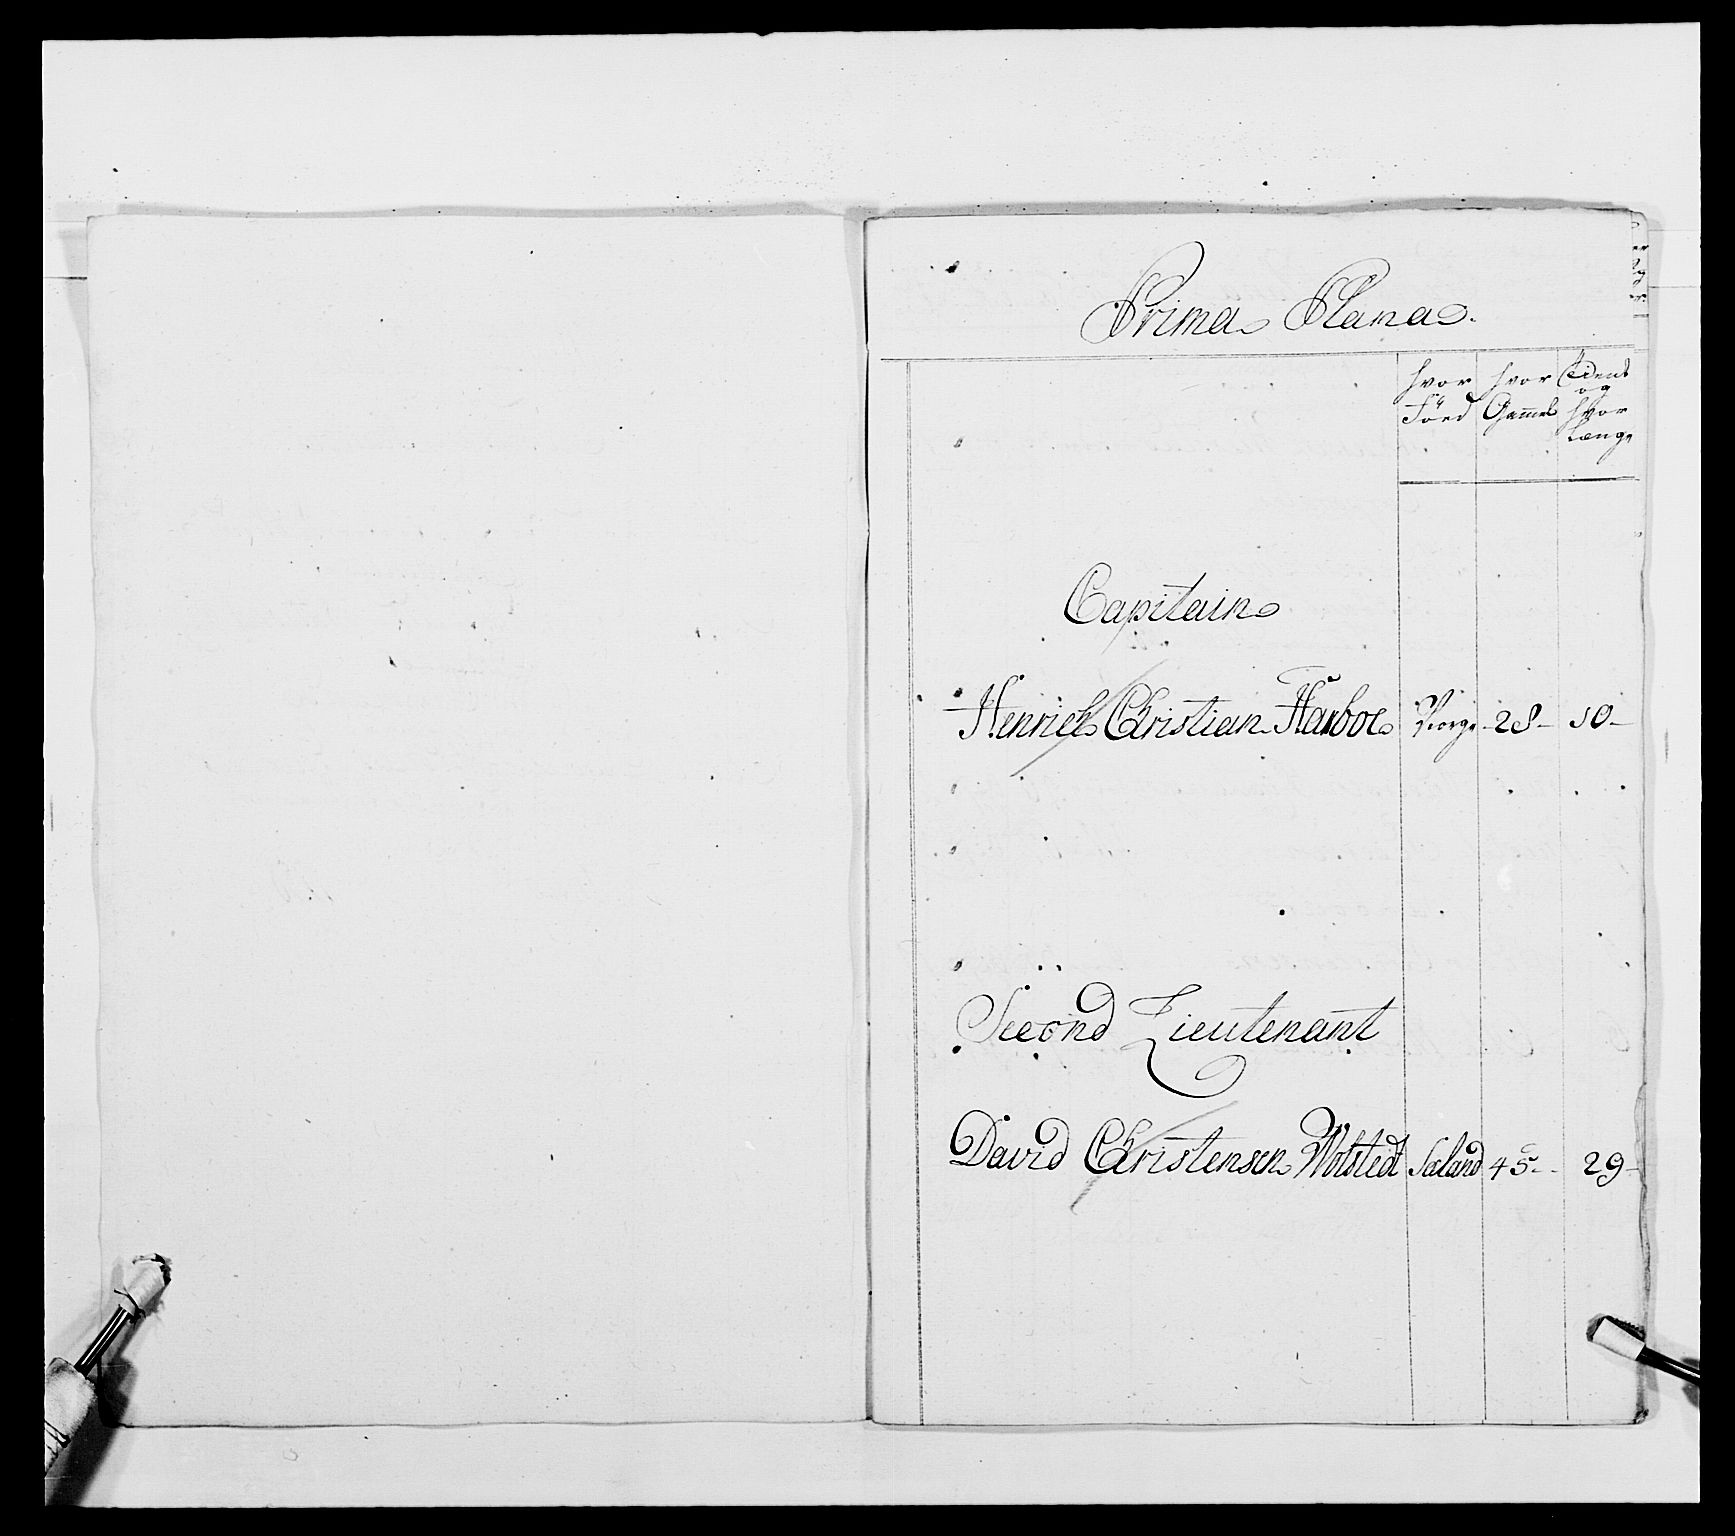 Prima Plana.
hvor Föed
hvor Gammel
Tienst og hvor Længe
Capitain
Henrich Christian Harboe Norge 28 10
Second Lieutenant
David Christensen Wolstedt Sæland 45 29